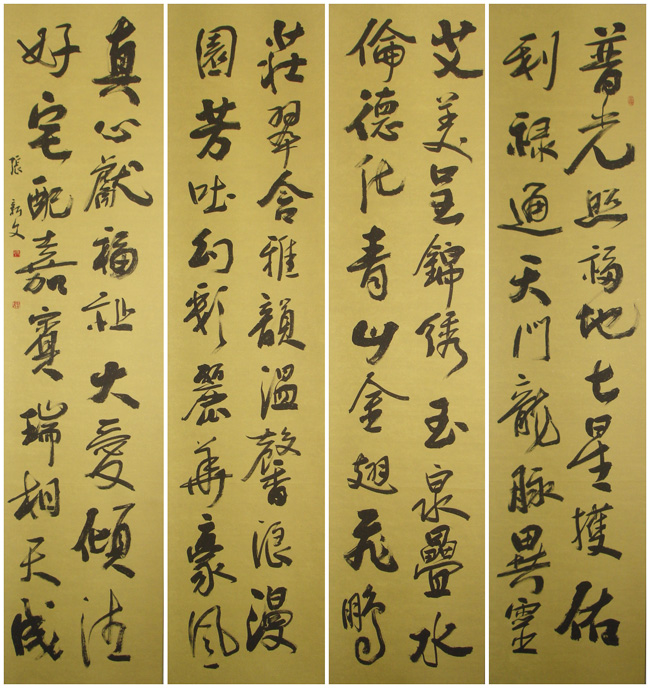 普光照福地七星擭佑
利祿通天門龍脈異靈
艾美呈錦綉玉泉疊水
倫德化青山金翅飛鵬
莊翠含雅韻溫馨浪漫
園芳吐幻彩麗華豪風
真心獻福祉大愛傾
好宅配嘉賓瑞相天成
張新文